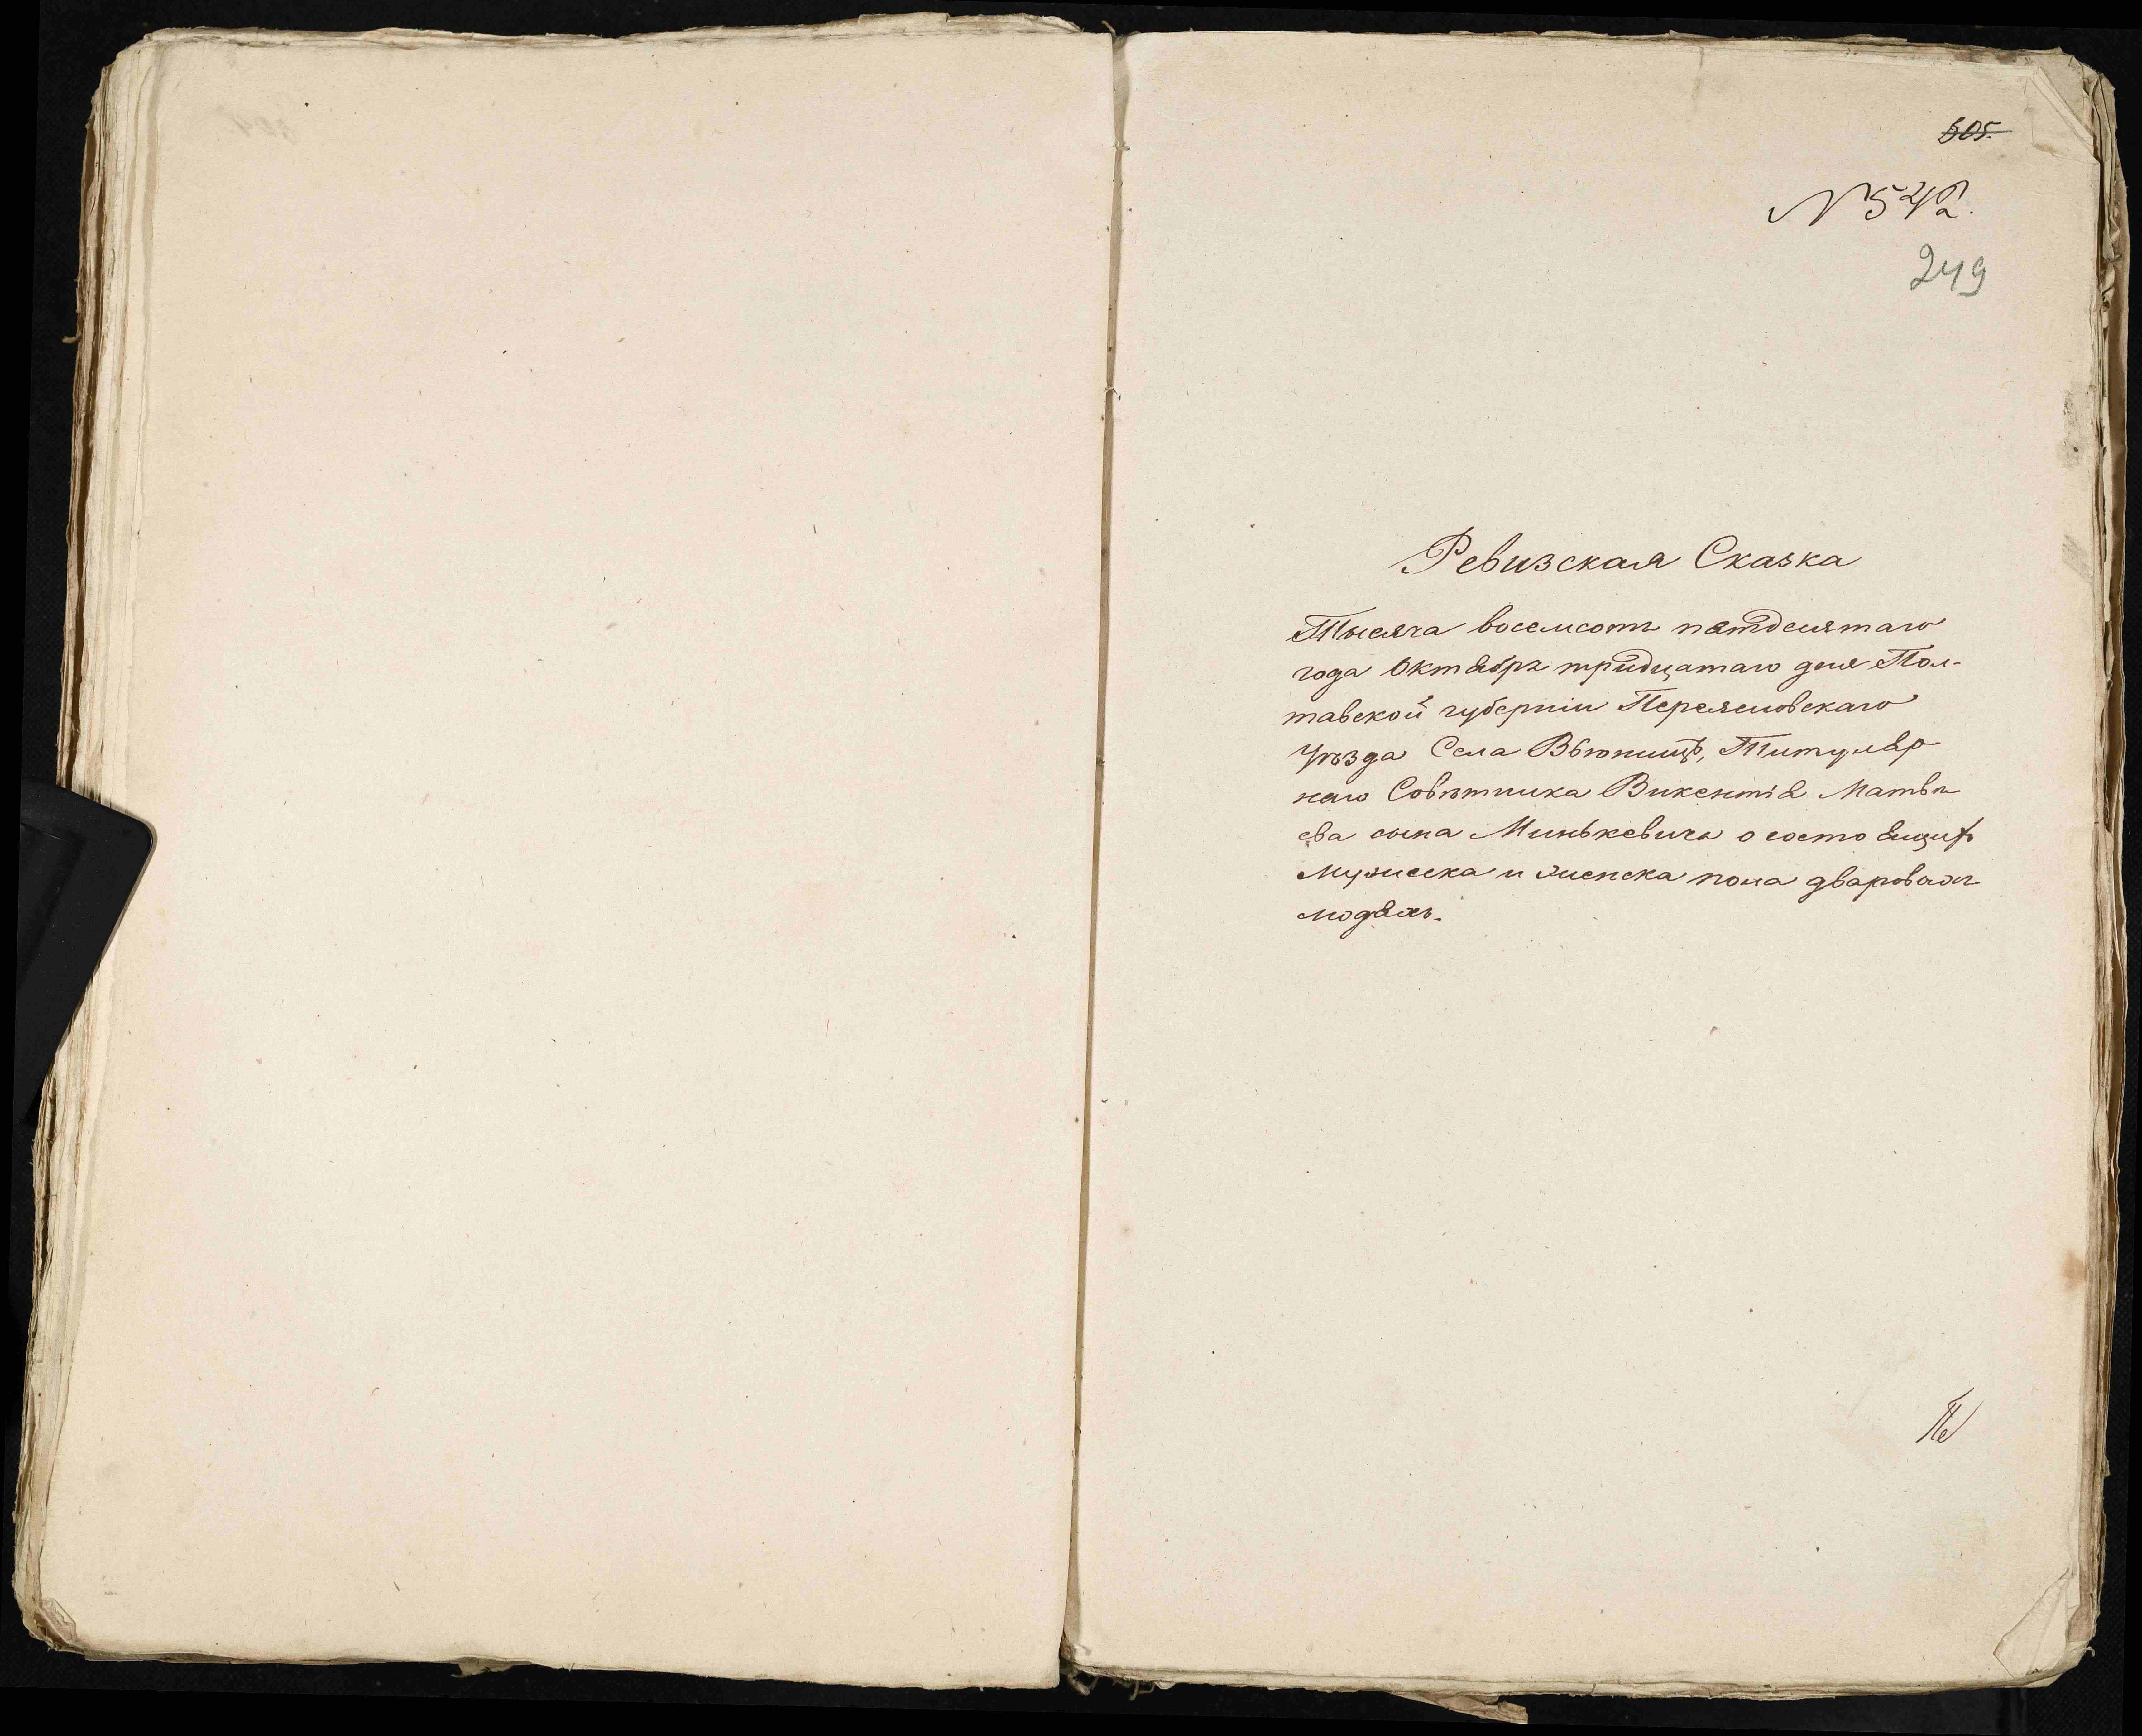 605.
N 542.
249
Ревизская Сказка
Тысяча восемсотъ пятдесятаго
года Октября тридцатаго дня Пол-
тавской губерніи Переяславскаго
уѣзда Села Вьюнищъ, Титуляр
наго Совѣтника Викентія Матвѣ
ева сына Минькевича о состоящихъ
мужеска и женска пола дваровыхъ
людяхъ.